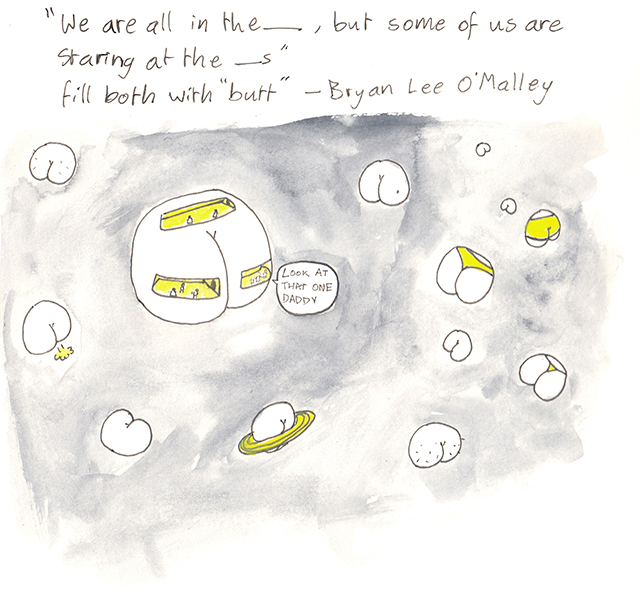 "We are all in the ___, but some of us are
staring at the __s"
fill both with "butt" – Bryan Lee O'Malley
LOOK AT
THAT ONE
DADDY